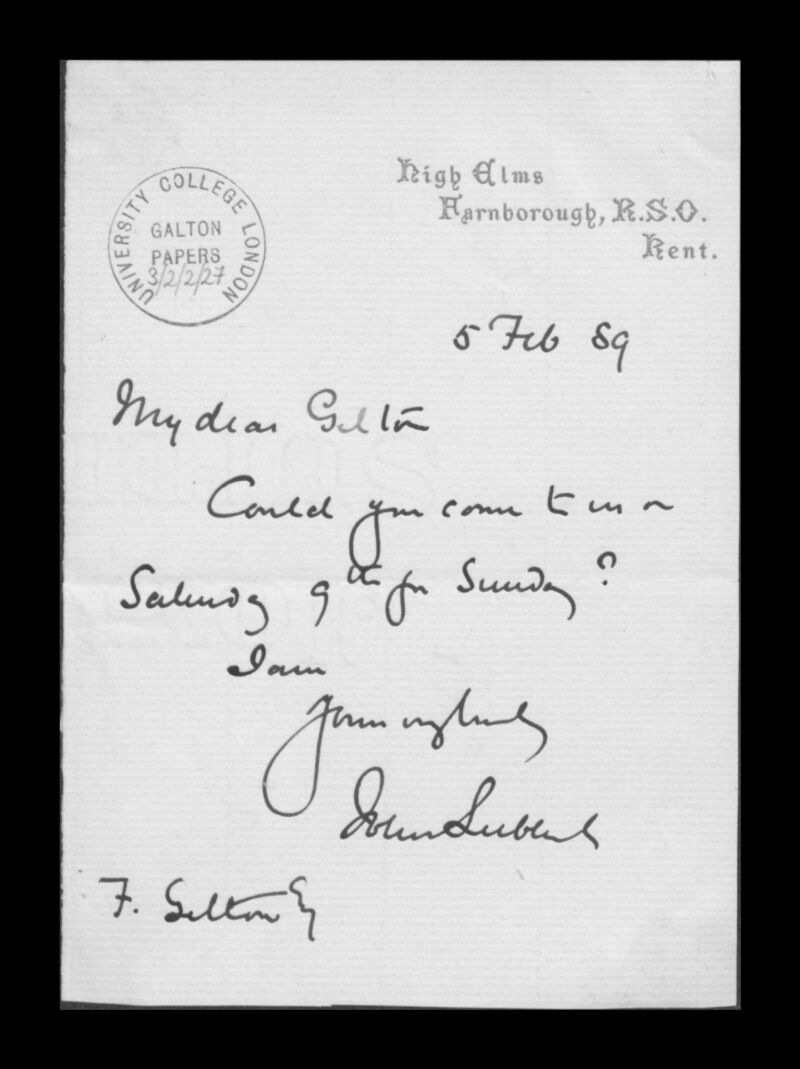 High Elms
Farnborough, R.S.O.
Kent.
UNIVERSITY COLLEGE LONDON
GALTON
PAPERS
3/2/2/27
5 Feb 89
My dear Galton
Could you come to us on
Saturday 9th for Sunday?
I am
Yours very truly
John Lubbock
F. Galton Esq